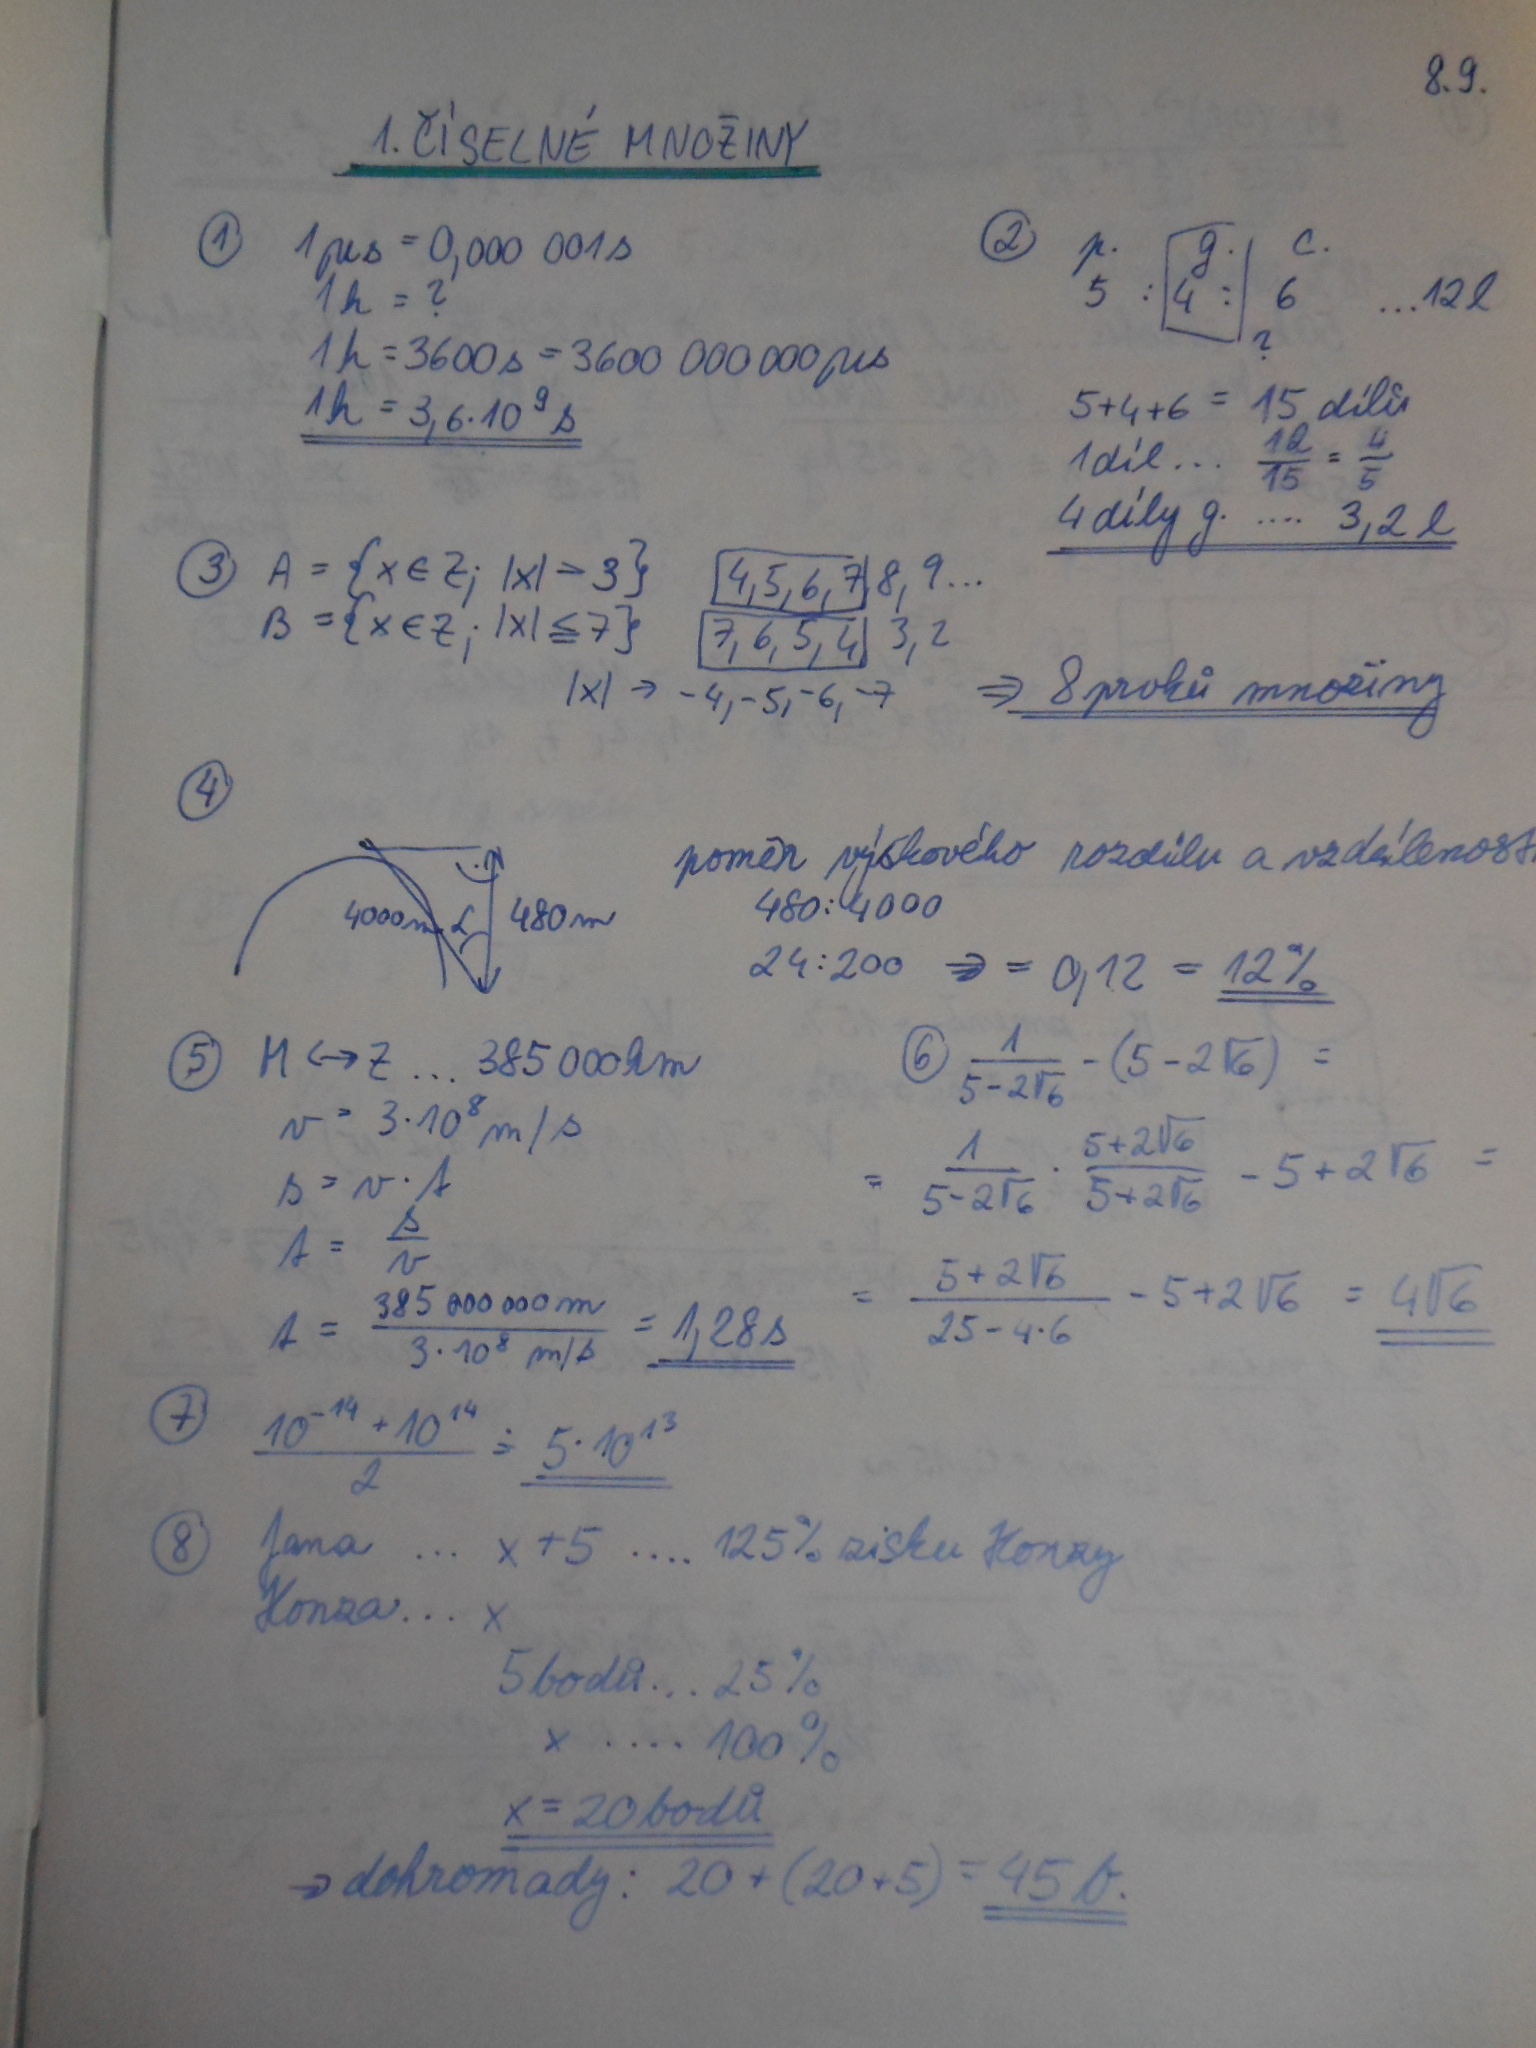 8.9.
1. ČÍSELNÉ MNOŽINY
① 1μs = 0,000 001s
1h = ?
1h = 3600s = 3600 000 000μs
1h = 3,6·10⁹s
② p. g. c.
5 : 4 : 6 ...12l
?
5+4+6 = 15 dílů
1díl... 12/15 = 4/5
4díly g. .... 3,2l
③ A = {x∈Z; |x| > 3} 4,5,6,7,8,9...
B = {x∈Z; |x| ≤ 7} 7,6,5,4, 3,2
|x| → -4,-5,-6,-7 ⇒ 8 prvků množiny
④
4000m α 480m
poměr výškového rozdílu a vzdálenosti
480:4000
24:200 ⇒ = 0,12 = 12%
⑤ M ↔ Z ... 385 000km
v = 3·10⁸ m/s
s = v·t
t = s/v
t = 385 000 000m / 3·10⁸ m/s = 1,28s
⑥ 1/(5-2√6) - (5-2√6) =
= 1/(5-2√6) · (5+2√6)/(5+2√6) - 5+2√6 =
= (5+2√6)/(25-4·6) - 5+2√6 = 4√6
⑦ (10⁻¹⁴ + 10¹⁴)/2 ≐ 5·10¹³
⑧ Jana ... x+5 .... 125% zisku Honzy
Honza... x
5 bodů... 25%
x .... 100%
x = 20 bodů
→ dohromady: 20+(20+5) = 45 b.